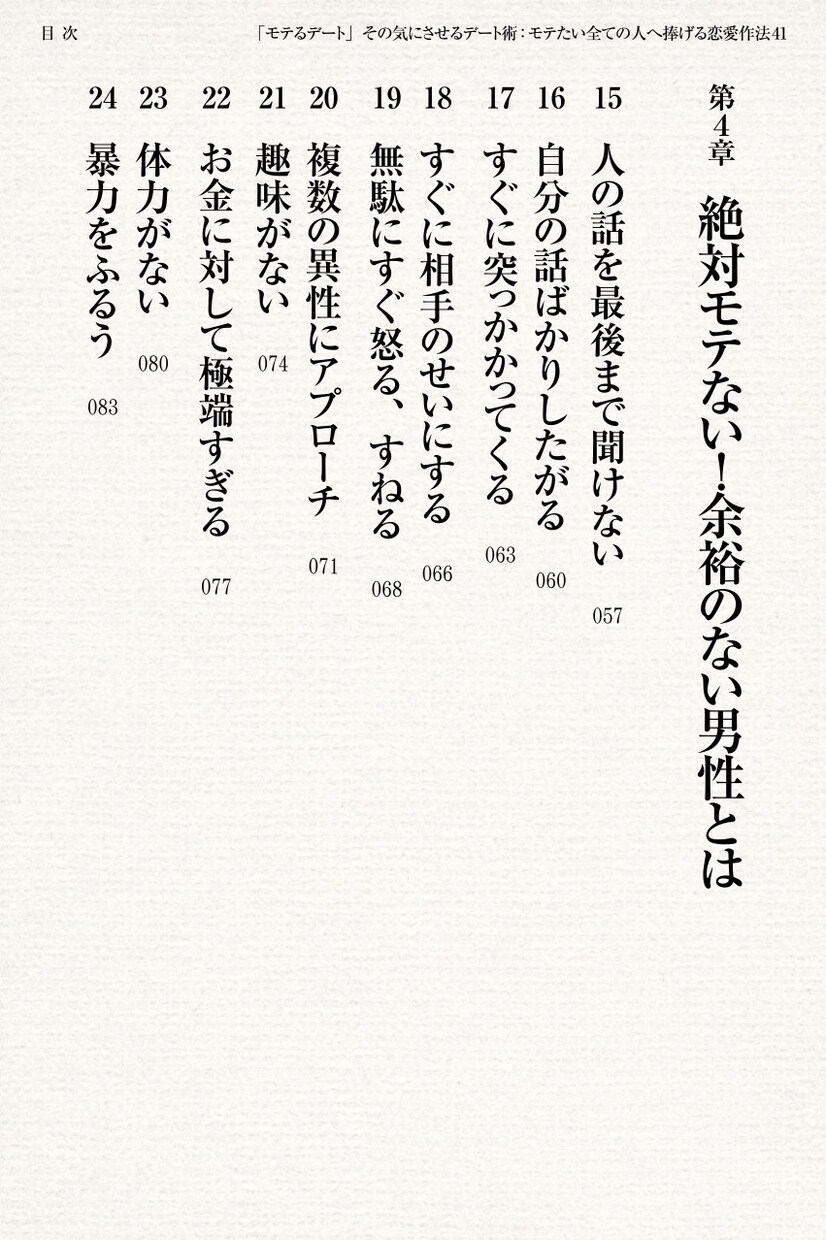 目次
「モテるデート」その気にさせるデート術：モテたい全ての人へ捧げる恋愛作法41
第4章 絶対モテない！余裕のない男性とは
15 人の話を最後まで聞けない 057
16 自分の話ばかりしたがる 060
17 すぐに突っかかってくる 063
18 すぐに相手のせいにする 066
19 無駄にすぐ怒る、すねる 068
20 複数の異性にアプローチ 071
21 趣味がない 074
22 お金に対して極端すぎる 077
23 体力がない 080
24 暴力をふるう 083